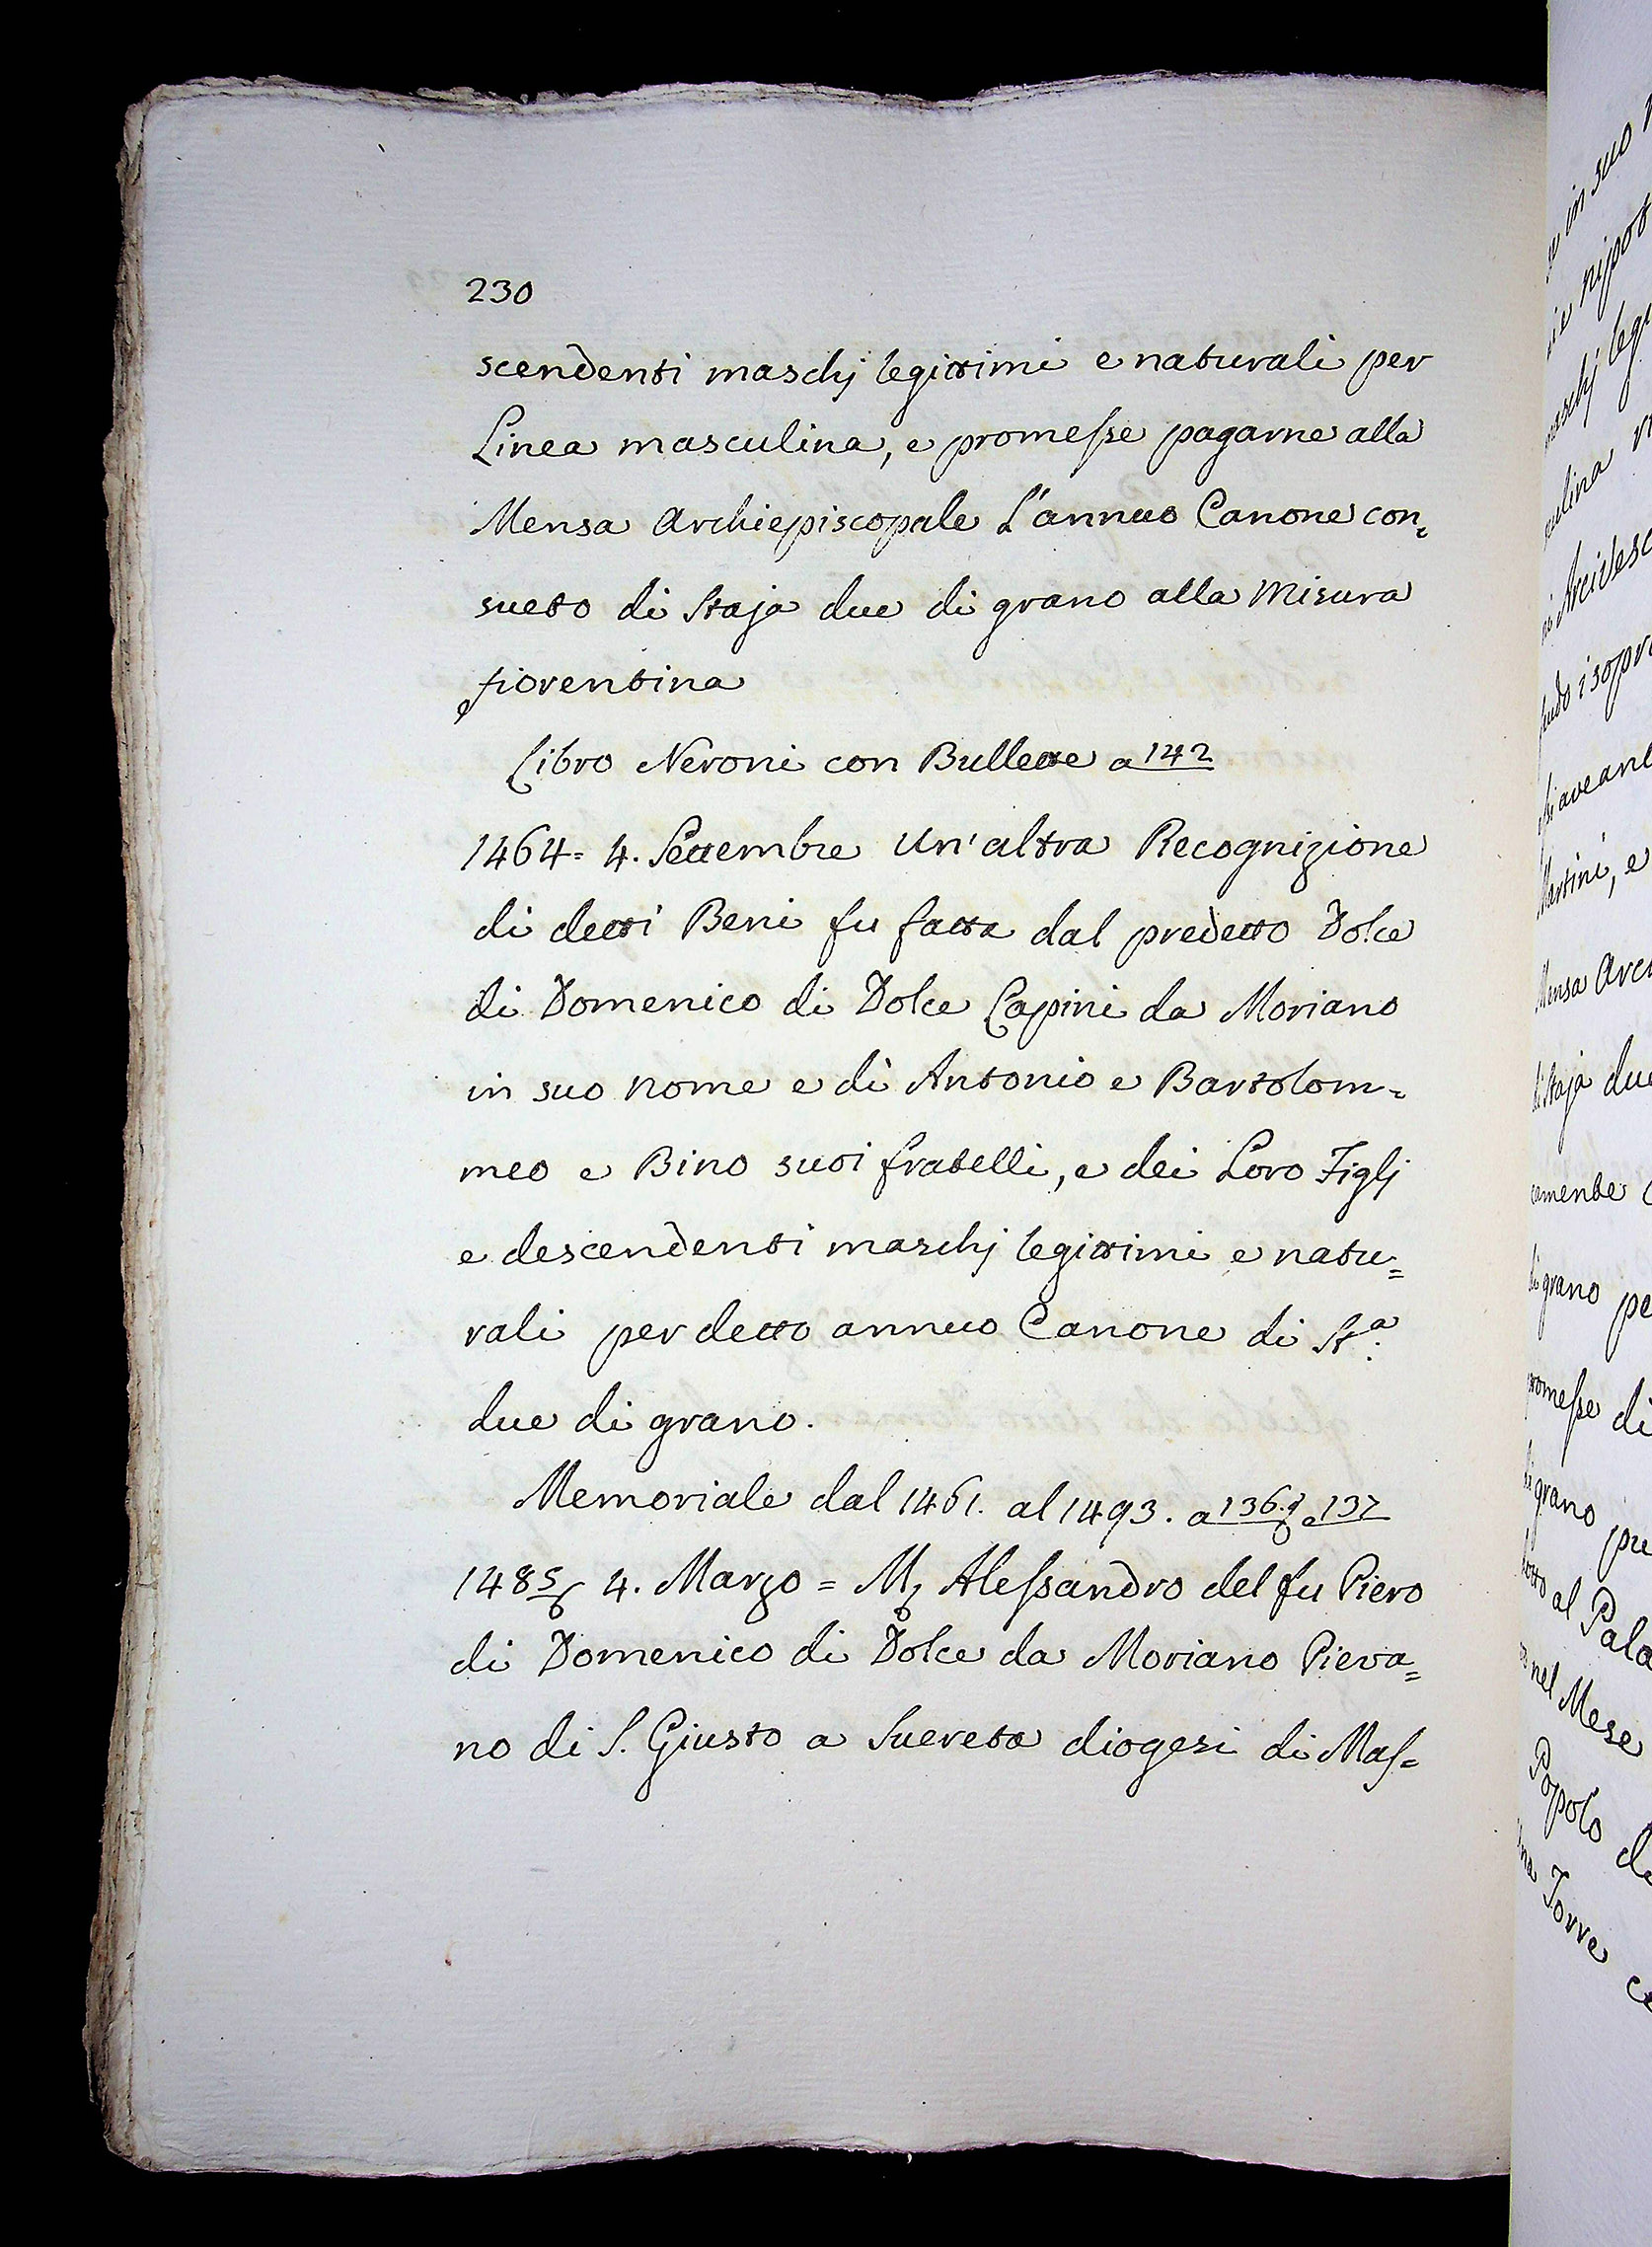 230
scendenti maschj legittimi e naturali per
Linea masculina, e promesse pagarne alla
Mensa Archiepiscopale L'annuo Canone con=
sueto di Staja due di grano alla Misura
fiorentina
Libro Neroni con Bullette a 142
1464= 4. Settembre Un'altra Recognizione
di detti Beni fu fatta dal predetto Dolce
di Domenico di Dolce Capini da Moriano
in suo nome e di Antonio e Bartolom=
meo e Bino suoi fratelli, e dei Loro Figlj
e descendenti maschj legittimi e natu=
rali per detto annuo Canone di Sta.
due di grano.
Memoriale dal 1461. al 1493. a 136. e 137
1485 4. Marzo = M. Alessandro del fu Piero
di Domenico di Dolce da Moriano Pieva=
no di S. Giusto a Suereta diogesi di Mas=
in suo
nipot
maschj leg
culina
Arcivesc
sopr
aveano
Martini, e
Mensa Arc
di Staja due
amente
di grano pe
promesse di
di grano pu
al Pala
nel Mese
Popolo di
Torre